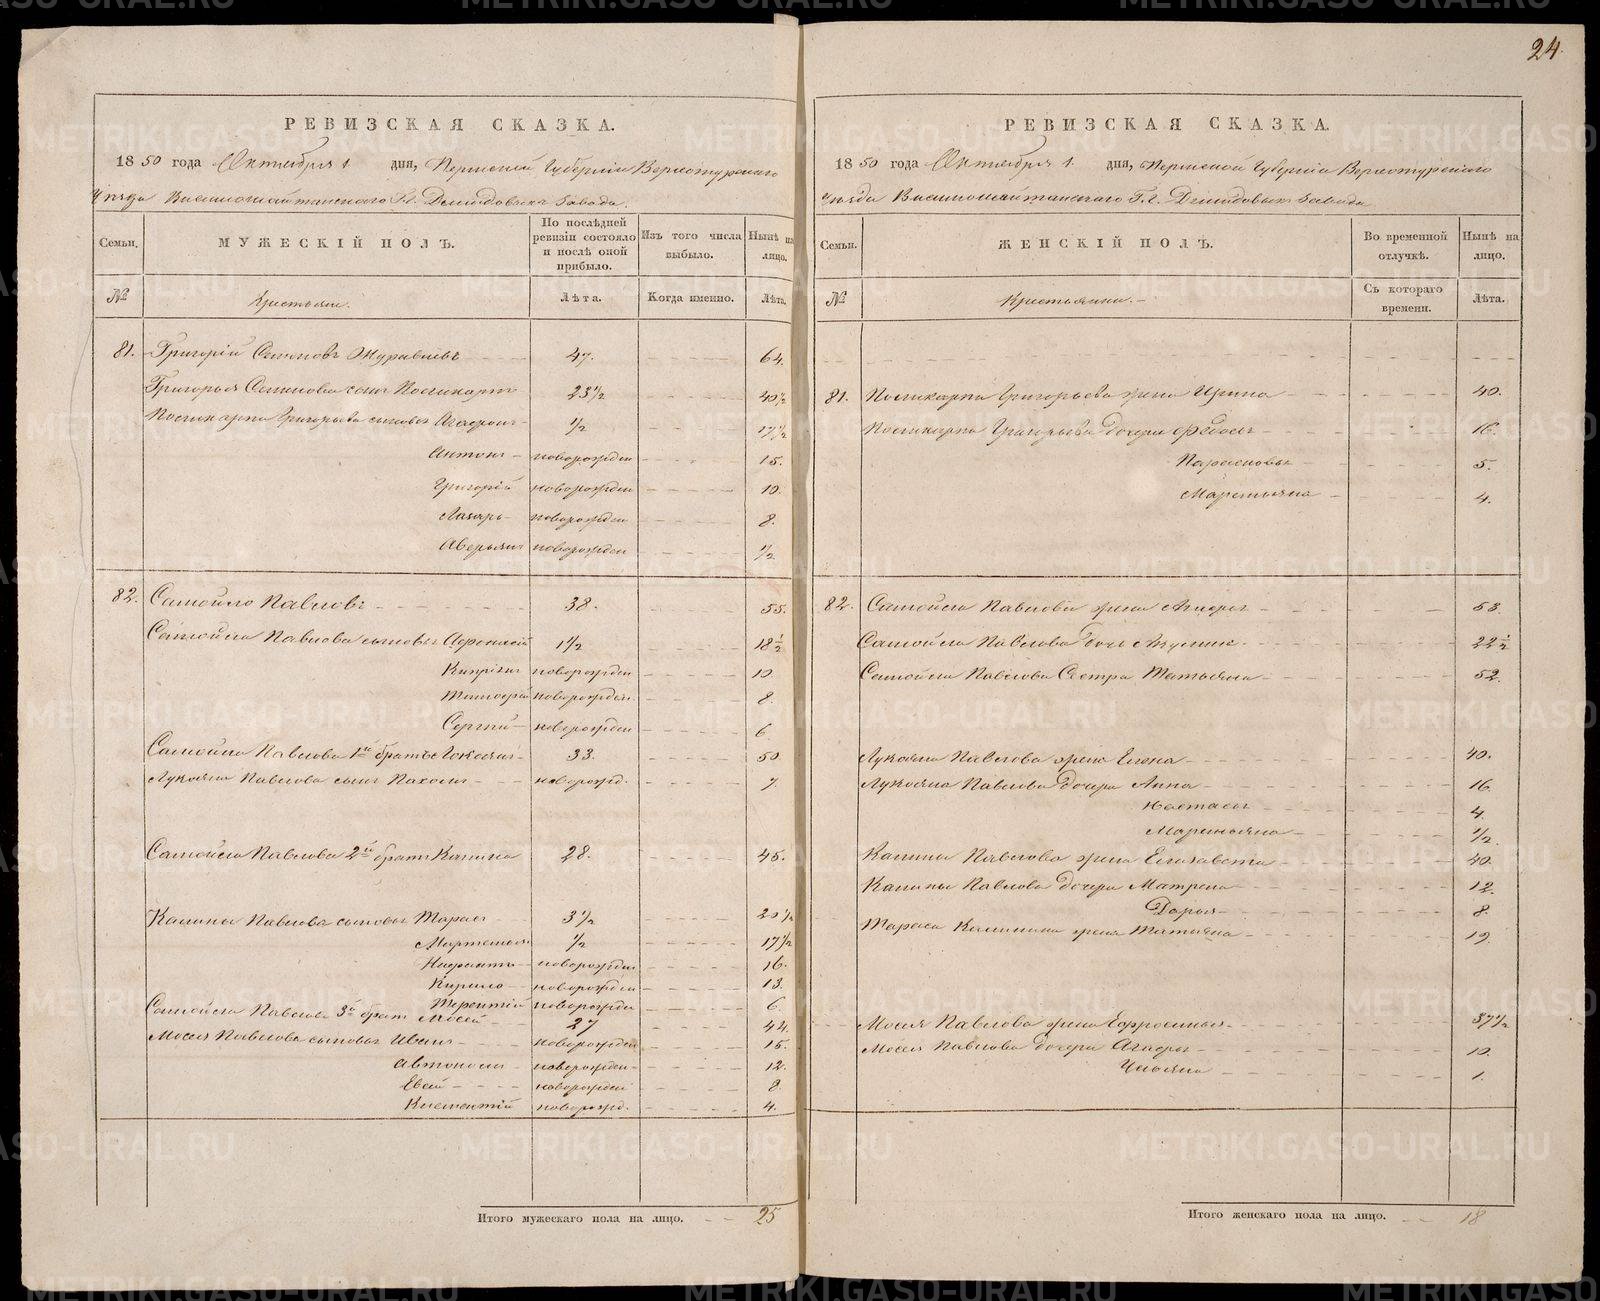 24.
РЕВИЗСКАЯ СКАЗКА.
1850 года Октября 1 дня, Пермской Губернiи Верхотурскаго
Уѣзда Висимошайтанскаго Г.г. Демидовыхъ Завода.
Семьи.
МУЖЕСКІЙ ПОЛЪ.
По послѣдней ревизіи состояло и послѣ оной прибыло.
Изъ того числа выбыло.
Нынѣ на лицо.
№
Крестьяне.
Лѣта.
Когда именно.
Лѣта.
81. Григорій Семеновъ Журавлевъ 47. 64.
Григорья Семенова сынъ Поликарпъ 23½ 40½
Поликарпа Григорьева сыновья Агафонъ ½ 17½
Антонъ новорожден 15.
Григорій новорожден 10.
Лазарь новорожден 8.
Аверьянъ новорожден ½
82. Самойло Павловъ 38. 55.
Самойла Павлова сыновья Афонасей 1½ 18½
Кипріянъ новорожден 10.
Тимофей новорожден. 8.
Сергей новорожден 6
Самойла Павлова 1й братъ Лукоянъ 33. 50
Лукояна Павлова сынъ Пахомъ новорожд. 7.
Самойла Павлова 2й братъ Калина 28. 45.
Калины Павлова сыновья Тарасъ 3½ 20½
Мартемьян ½ 17½
новорожден 16.
Кирило новорожден 13.
Терентій новорожден 6
Самойла Павлова 3й братъ Мосей 27 44.
Мосея Павлова сыновья Иванъ новорожден 15.
Автономъ новорожден 12.
Евсей новорожден 8
Климентій новорожд. 4.
Итого мужескаго пола на лицо. 25
РЕВИЗСКАЯ СКАЗКА.
1850 года Октября 1. дня, Пермской Губернiи Верхотурскаго
Уѣзда Висимошайтанскаго Г.г. Демидовыхъ Завода
Семьи.
ЖЕНСКІЙ ПОЛЪ.
Во временной отлучкѣ.
Нынѣ на лицо.
№
Крестьянки.
Съ котораго времени.
Лѣта.
81. Поликарпа Григорьева жена Ирина 40.
Поликарпа Григорьева дочери Федосья 16.
Парасковья 5.
Маремьяна 4.
82. Самойла Павлова жена Агафья 53.
Самойла Павлова дочь Акулина 22½
Самойла Павлова Сестра Татьяна 52.
Лукояна Павлова жена Елена 40.
Лукояна Павлова дочери Анна 16.
Настасья 4.
Маремьяна ½
Калины Павлова жена Елизавета 40.
Калины Павлова дочери Матрена 12.
Дарья 8.
Тараса Калинина жена Татьяна 19.
Мосея Павлова жена Ефросинья 37½
Мосея Павлова дочери Агафья 10.
Ульяна 1.
Итого женскаго пола на лицо. 18
METRIKI.GASO-URAL.RU